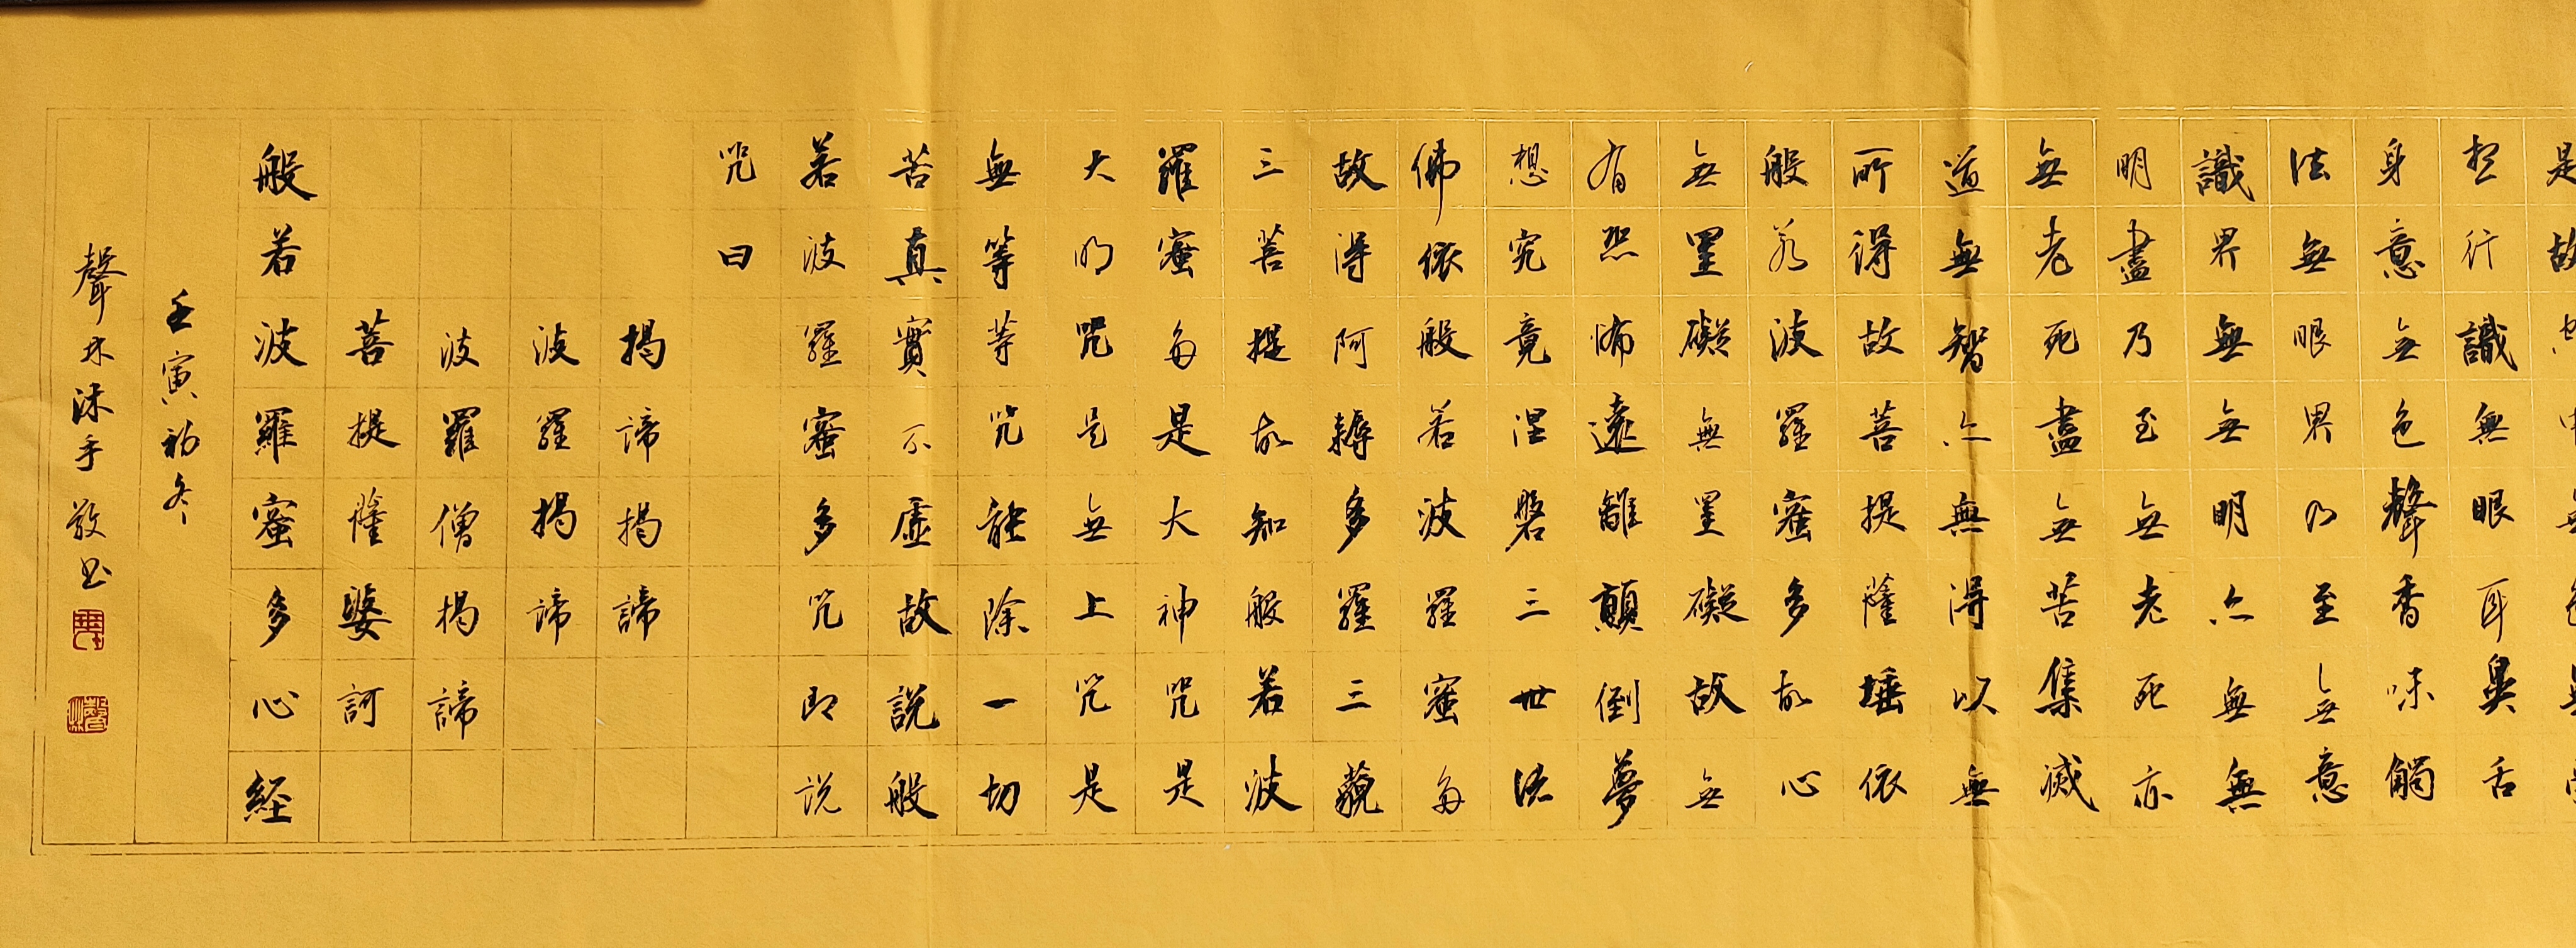 是故
想行識無眼耳鼻舌
身意無色聲香味觸
法無眼界乃至無意
識界無無明亦無無
明盡乃至無老死亦
無老死盡無苦集滅
道無智亦無得以無
所得故菩提薩埵依
般若波羅蜜多故心
無罣礙無罣礙故無
有恐怖遠離顛倒夢
想究竟涅磐三世諸
佛依般若波羅蜜多
故得阿耨多羅三藐
三菩提故知般若波
羅蜜多是大神咒是
大明咒是無上咒是
無等等咒能除一切
苦真實不虛故說般
若波羅蜜多咒即說
咒曰
揭諦揭諦
波羅揭諦
波羅僧揭諦
菩提薩婆訶
般若波羅蜜多心経
壬寅初冬
聲林沐手敬书